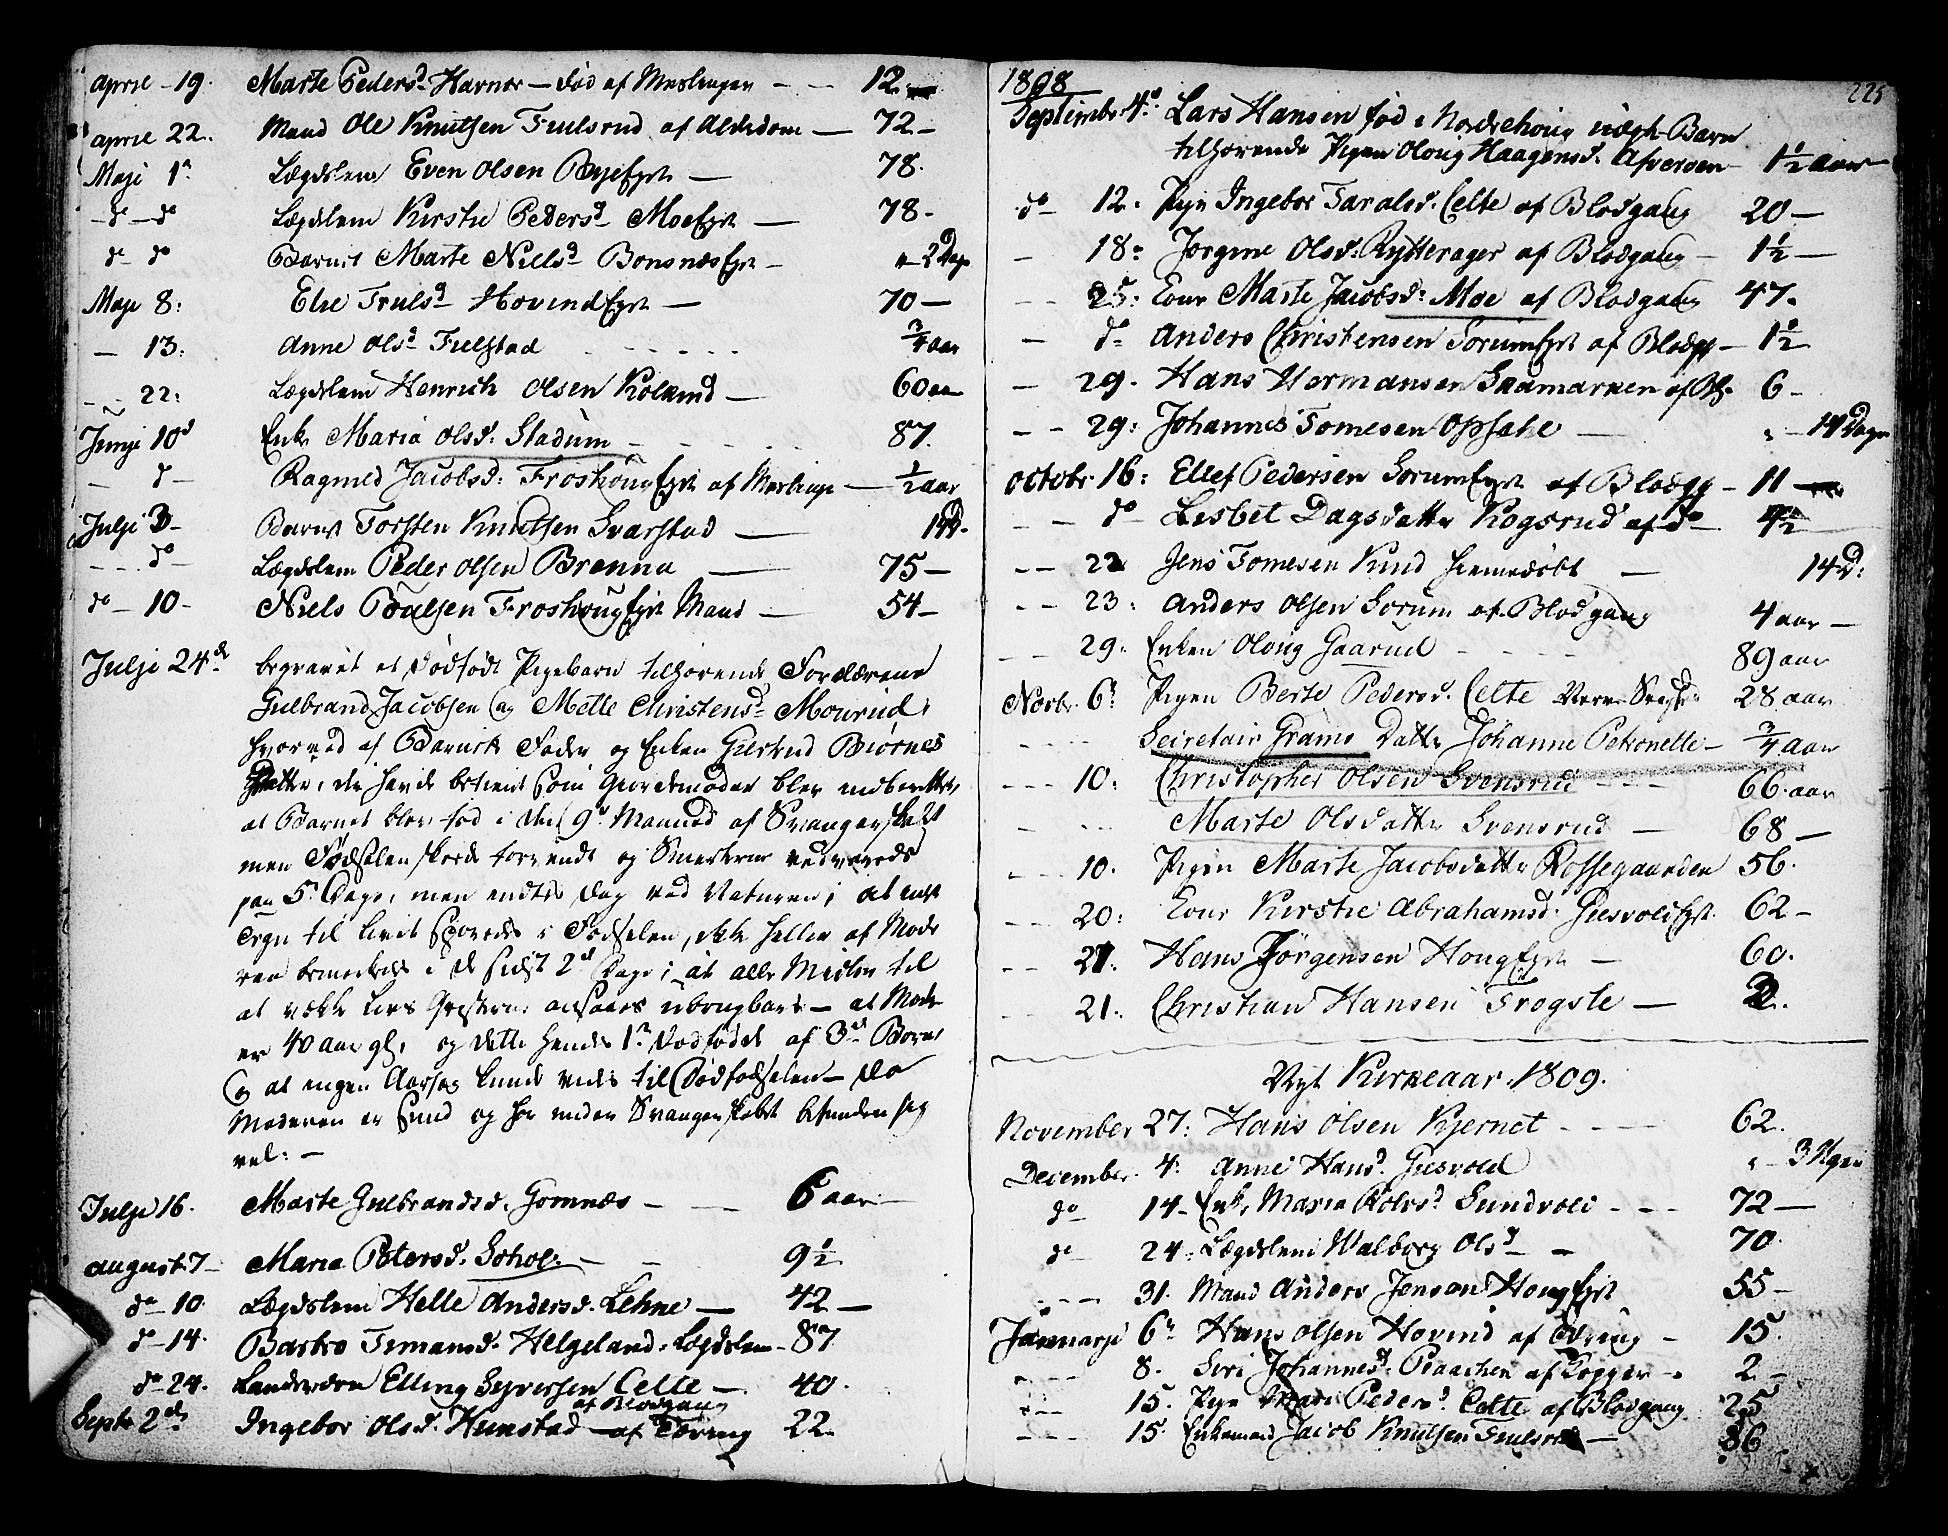 aprie - 19. Marte Pedersd. Havnor - død af Meslinger - - 12
aprie 22. Mand Ole Knutsen Fiulsrud af Alderdom — 72 -
Maji 1. Lægdslem Even Olsen Bye Ejet — 78.
- do - do Lægdslem Kirstie Pedersd. Moe Ejet — 78 -
do do Barnet Marte Nielsd. Bonsnæs Ejet - 2 Dage
Maje 8: Else Trulsd. Hovind Ejet — 70 —
- 13: Anne Olsd. Fielstad - - - - - 3/4 aar
- - 22: Lægdslem Henrich Olsen Rolemd — 60 aar
Junji 10d Enke Maria Olsd. Stadum - - - - 87.
- d - Ragnild Jacobsd: Froshoug Ejet af Meslinger — 1/2 aar
Julji 3 - Barnet Torsten Knutsen Svarstad — 14 D.
- - - do - Lægdslem Peder Olsen Brenna — 75 —
do - 10 - Niels Poulsen Froshoug Ejet Mand — 54 -
Julji 24de begravet et dødfødt Pigebarn tilhørende Forældrene
Gulbrand Jacobsen og Mette Christensd. Mourud,
hvorved af Barnets Fader og Enken Giertrud Biørnes
Datter, der havde betient som Giordemoder blev indberettet,
at Barnet blev fød i den 9de Maaned af Svangerskabet
men Fødselen skeede forvendt og Smerterne vedvarede
paa 5 Dage, men endtes dog ved Naturen; at intet
Tegn til Livet sporedes i Fødselen, ikke heller af Mode-
ren bemærkedes i de sidst 2de Dage; at alle Midler til
at vække Livs Gnisterne ansaaes ubrugbare — at Moderen
er 40 aar gl, og dette hendes 1te dødfødde af 3de Børn
og at ingen Aarsag kunde vides til Dødfødselen — da
Moderen er sund og har under Svangerskabet befunden sig
vel: —
Julji 16. Marte Gulbrandsd. Gomnæs - — 6 aar —
august 7 - Maria Petersd. Sohol: - - 9 1/2
do - 10. Lægdslem Helle Andersd. Lehne — 42 —
do - 14. Bastro Simansd. Helgeland. Lægdslem - 87
do - 24. Landværn Elling Syversen Celte — 40.
af Blodgang
Septbr 2de Ingebor Olsd. Hunstad — af Tæring 22.
1808
225
September 4de Lars Hansen fød i Norderhoug uægte Barn
tilhørende Pigen Oloug Haagensd. Asversen — 1 1/2 aar
do - 12. Pige Ingebor Taralsd. Celte af Blodgang 20 —
- 18 - Jorgine Olsd. Rytterager af Blodgang - 1 1/2 —
- - 25: Cone Marte Jacobsd: Moe af Blodgang 47.
- do - Anders Christensen Sorum Ejet af Blodg - 1 1/2
- 29. Hans Hermansen Saamarken af Bl. 6 -
- - 29: Johannes Tomesen Opsahl — „ - 14 Dage
Octobr. 16: Ellef Pedersen Sorum Ejet af Blodg - 11 —
- - do Lisbet Dagsdatter Rogsrud af do - 4 1/2
- - 22 Jens Tomesen Rund hiemedøbt — 14 D:
- - 23: Anders Olsen Sorum af Blodgang 4 aar —
- - 29. Enken Oloug Gaarud - - - 89 aar
Novbr. 6. Pigen Berte Pedersd. Celte 28 aar
- - - - Secretair Grams Datter Johanne Petronelle - 3/4 aar
- - - 10: Christopher Olsen Svensrud - - - 66 aar
- - - Marte Olsdatter Svensrud — 68 —
- - - 10. Pigen Marte Jacobsdatter Rossegaarden 56.
- - 20: Cone Kirstie Abrahamsd. Giesvold Ejet. 62 -
- - 21: Hans Jörgensen Houg Ejet — 60.
- - 21: Christian Hansen Frogste — 2.
Nyt Kirkeaar 1809.
November 27: Hans Olsen Kjernet - - - - 62.
December. 4: Anne Hansd. Giesvold „ - 3 Uger
do 14 - Enke, Maria Rolvsd. Sundvold - - - 72 —
do - 24: Lægdslem Walborg Olsd. - 70.
- - - 31. Mand Anders Jensen Houg Ejet 55 —
Januarji 6te Hans Olsen Hovind af Tæring - 15.
- - - 8. Siri Johannesd. Plaachen af Kopper - 2 -
- - - 15. Pige Mari Pedersd. Celte af Blodgang 25
- - - 15. Enkemand Jacob Knutsen Fiulsrud — 86